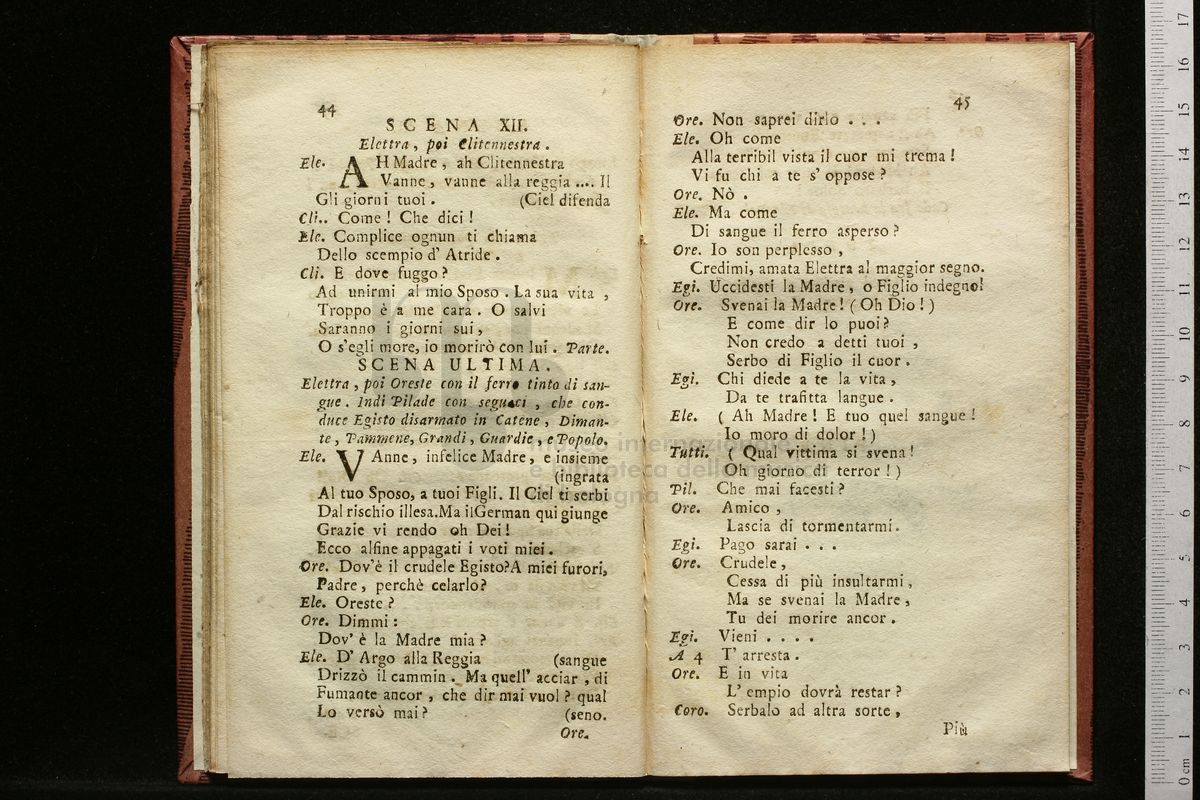 44
SCENA XII.
Elettra, poi Clitennestra.
Ele. AH Madre, ah Clitennestra
Vanne, vanne alla reggia .... Il
Gli giorni tuoi. (Ciel difenda
Cli.. Come! Che dici!
Ele. Complice ognun ti chiama
Dello scempio d' Atride.
Cli. E dove fuggo?
Ad unirmi al mio Sposo. La sua vita,
Troppo è a me cara. O salvi
Saranno i giorni sui,
O s'egli more, io morirò con lui. Parte.
SCENA ULTIMA.
Elettra, poi Oreste con il ferro tinto di san-
gue. Indi Pilade con seguaci, che con-
duce Egisto disarmato in Catene, Diman-
te, Pammene, Grandi, Guardie, e Popolo.
Ele. VAnne, infelice Madre, e insieme
(ingrata
Al tuo Sposo, a tuoi Figli. Il Ciel ti serbi
Dal rischio illesa.Ma ilGerman qui giunge
Grazie vi rendo oh Dei!
Ecco alfine appagati i voti miei.
Ore. Dov'è il crudele Egisto?A miei furori,
Padre, perchè celarlo?
Ele. Oreste?
Ore. Dimmi:
Dov' è la Madre mia?
Ele. D' Argo alla Reggia (sangue
Drizzò il cammin. Ma quell' acciar, di
Fumante ancor, che dir mai vuol? qual
Lo versò mai? (seno.
Ore.
45
Ore. Non saprei dirlo . . .
Ele. Oh come
Alla terribil vista il cuor mi trema!
Vi fu chi a te s' oppose?
Ore. Nò.
Ele. Ma come
Di sangue il ferro asperso?
Ore. Io son perplesso,
Credimi, amata Elettra al maggior segno.
Egi. Uccidesti la Madre, o Figlio indegno!
Ore. Svenai la Madre! (Oh Dio!)
E come dir lo puoi?
Non credo a detti tuoi,
Serbo di Figlio il cuor.
Egi. Chi diede a te la vita,
Da te trafitta langue.
Ele. (Ah Madre! E tuo quel sangue!
Io moro di dolor!)
Tutti. (Qual vittima si svena!
Oh giorno di terror!)
Pil. Che mai facesti?
Ore. Amico,
Lascia di tormentarmi.
Egi. Pago sarai . . .
Ore. Crudele,
Cessa di più insultarmi,
Ma se svenai la Madre,
Tu dei morire ancor.
Egi. Vieni . . . .
A 4 T' arresta.
Ore. E in vita
L' empio dovrà restar?
Coro. Serbalo ad altra sorte,
Più
museo internazionale
e biblioteca della musica
di Bologna
0 cm 1 2 3 4 5 6 7 8 9 10 11 12 13 14 15 16 17